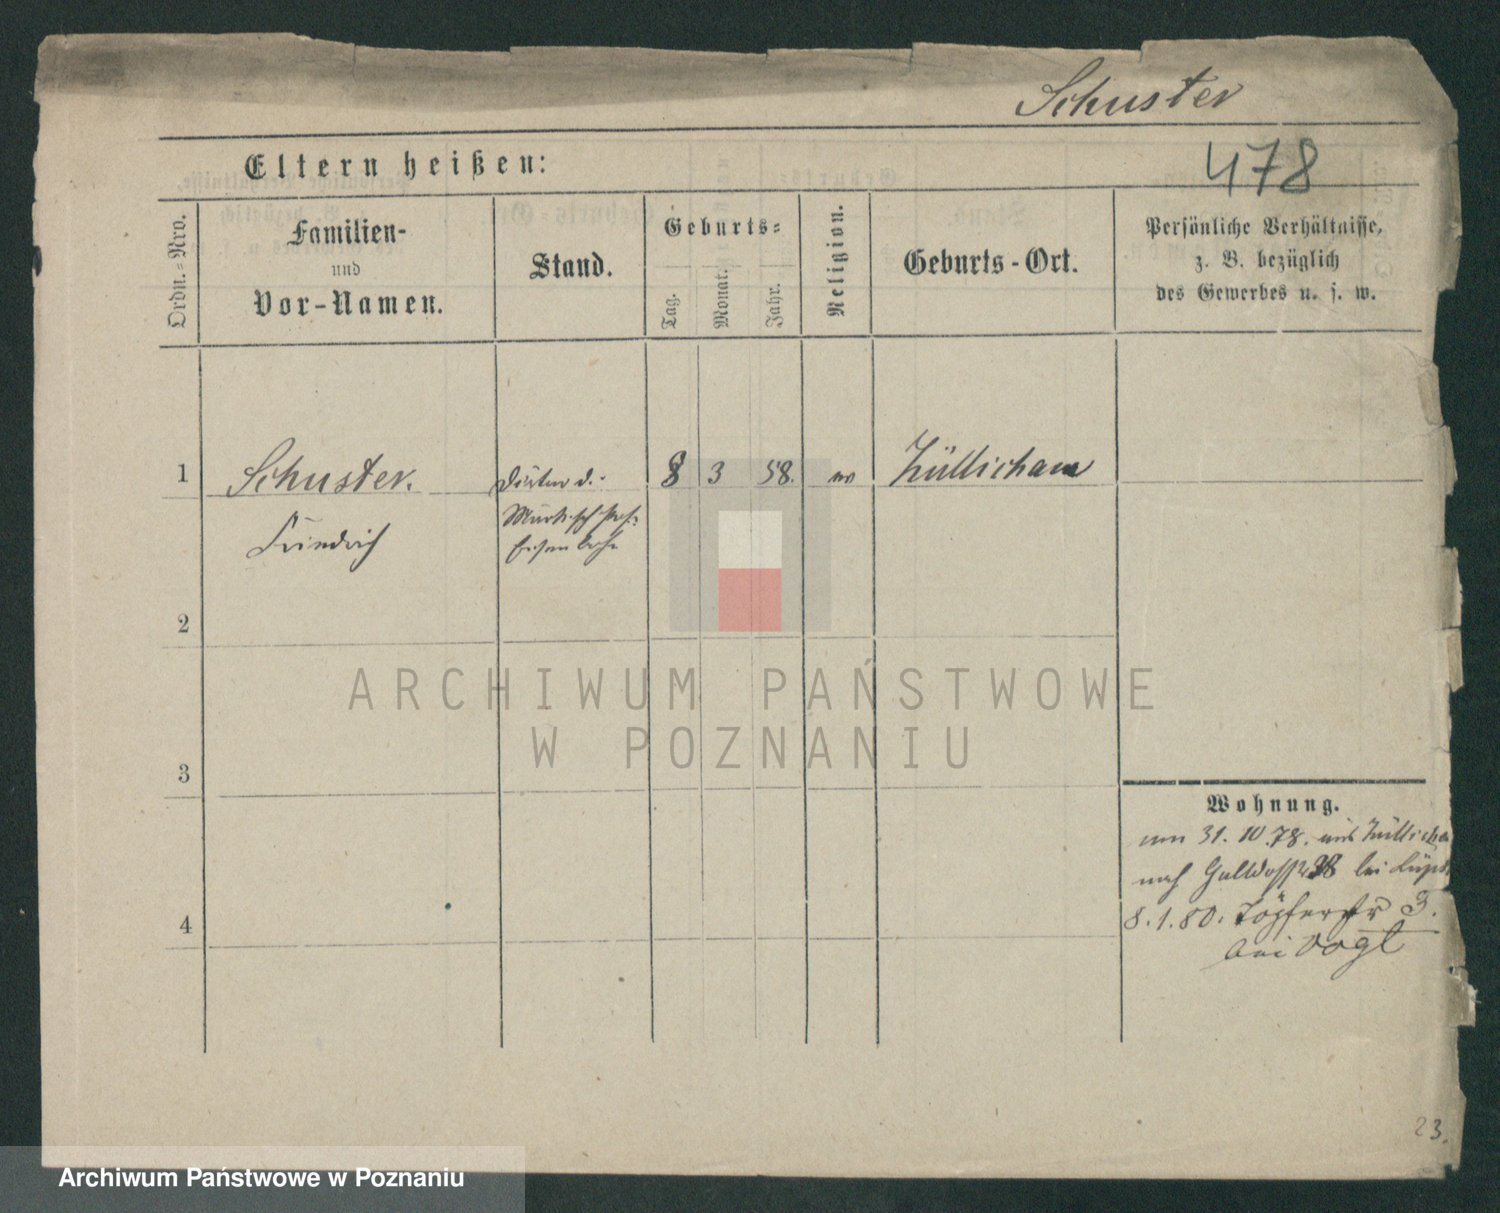 Schuster
478
Eltern heißen:
Ordn.=Nro.
Familien-
und
Vor-Namen.
Stand.
Geburts=
Tag.
Monat.
Jahr.
Religion.
Geburts-Ort.
Persönliche Verhältnisse,
z. B. bezüglich
des Gewerbes u. s. w.
1
Schuster.
Friedrich
Diätar d.
Märkisch Pos.
Eisenbahn
8
3
58.
ev
Züllichau
2
3
4
Wohnung.
am 31. 10. 78. aus Züllichau
nach bei
8. 1. 80. Töpferstr 3.
bei Vogt
23.
ARCHIWUM PAŃSTWOWE
W POZNANIU
Archiwum Państwowe w Poznaniu